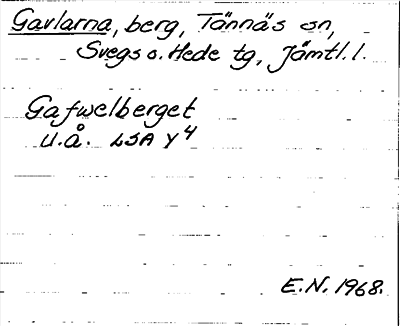 Gavlarna, berg, Tännäs sn,
Svegs o. Hede tg, Jämtl. l.
Gafwelberget
U.å. LSA Y4
E.N. 1968.